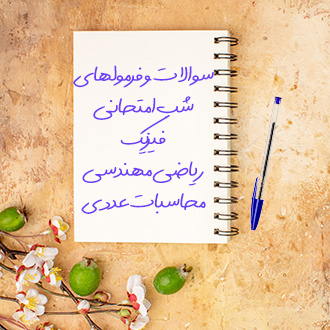 سوالات و فرمولهای
شب امتحانی
فیزیک
ریاضی مهندسی
محاسبات عددی